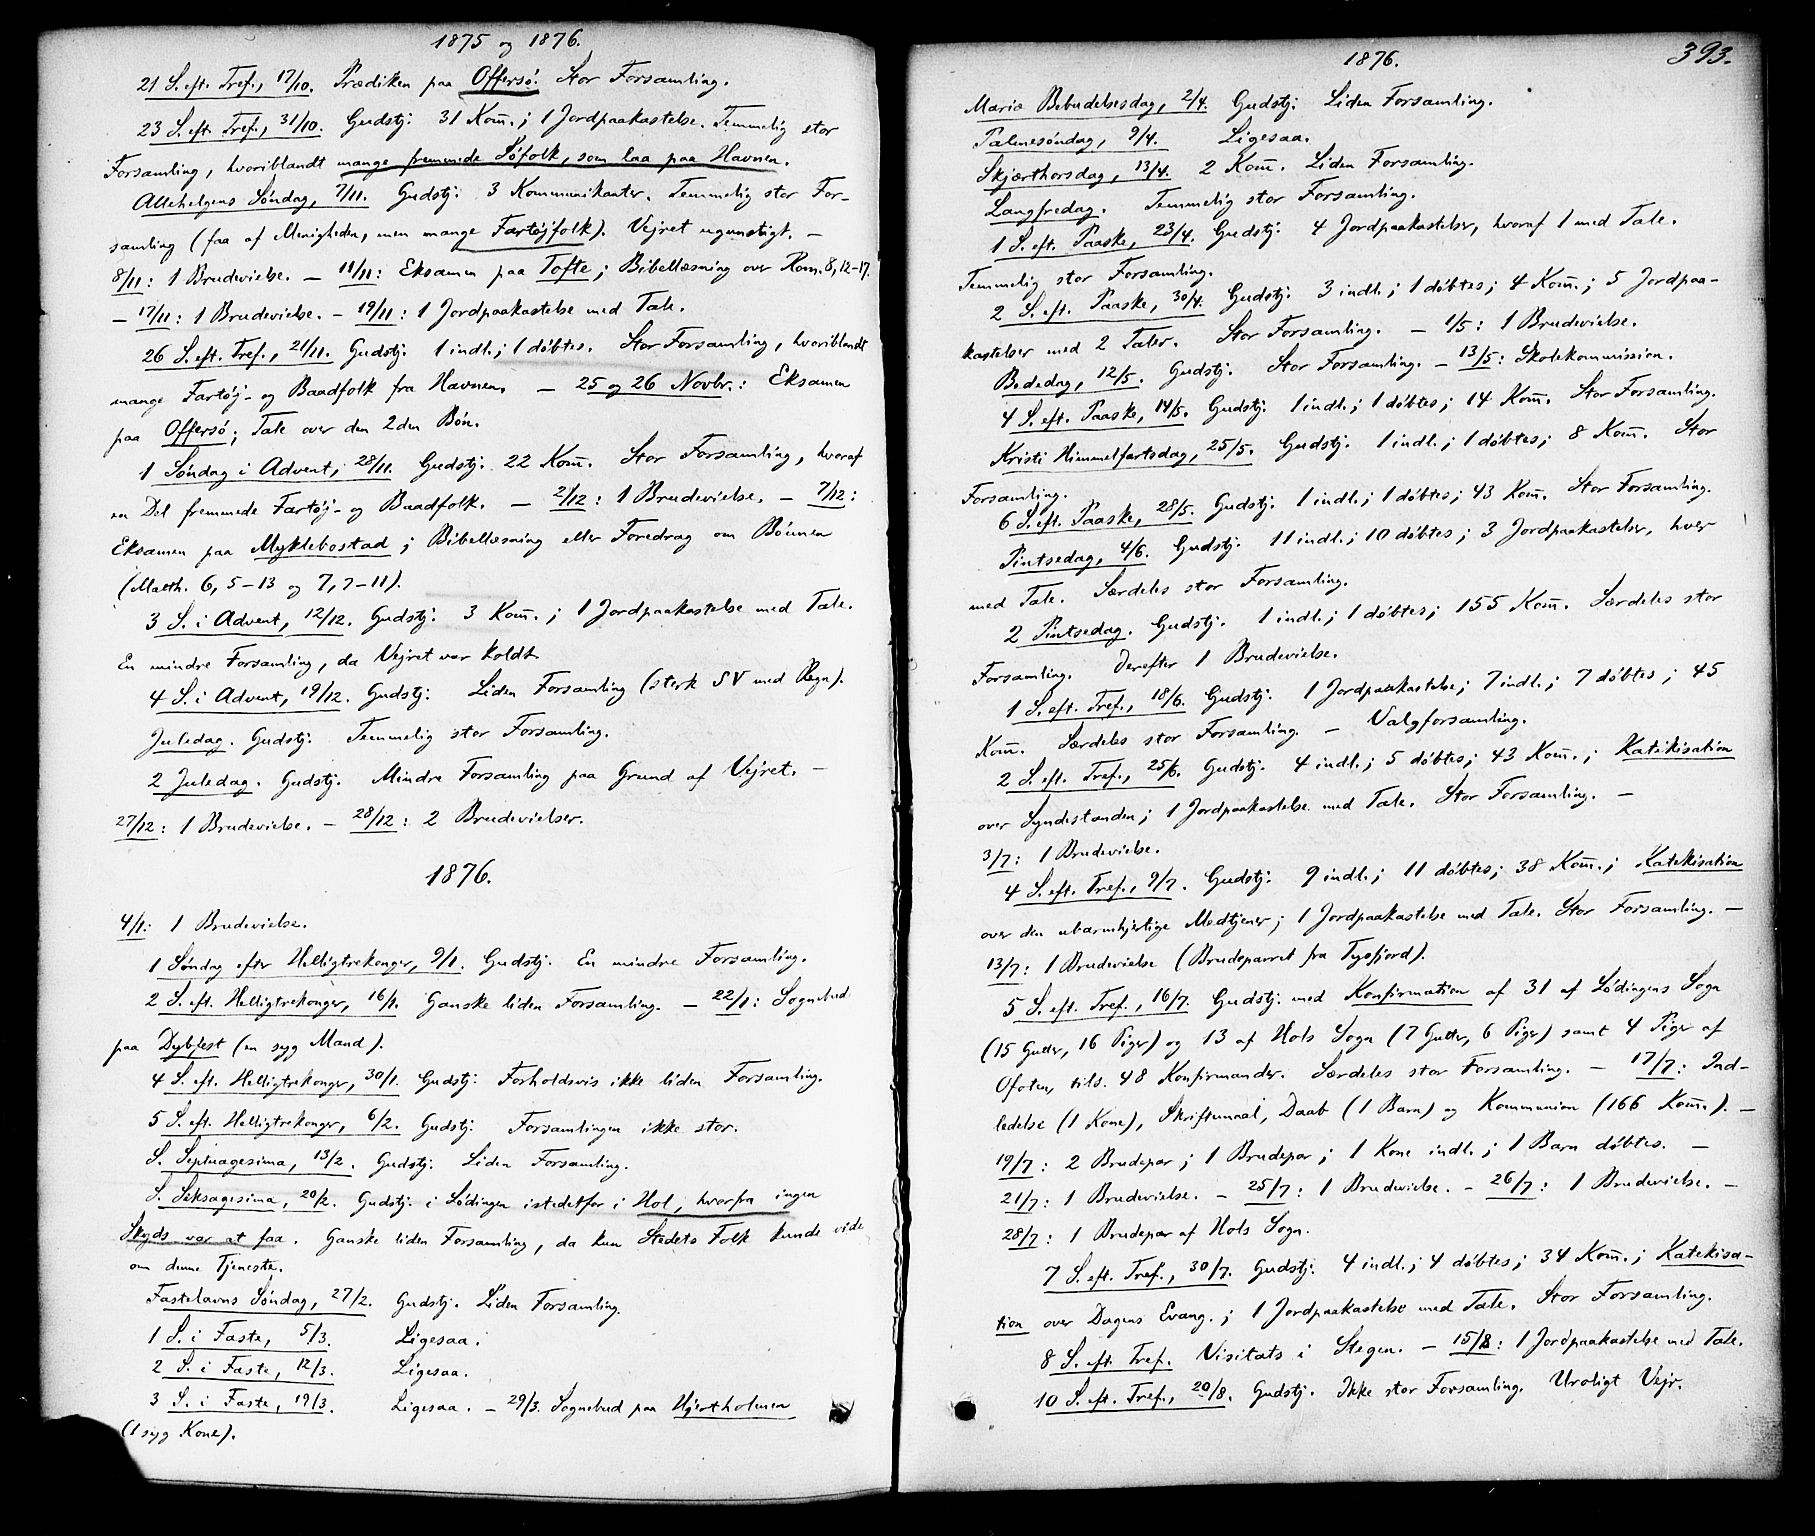 1875 og 1876.
21 S. eft. Tref., 17/10. Prædiken paa Offersö. Stor Forsamling.
23 S. eft. Tref., 31/10. Gudstj. 31 Kom̅.; 1 Jordpaakastelse. Temmelig stor
Forsamling, hvoriblandt mange fremmede Söfolk, som laa paa Havnen.
Allehelgens Söndag, 7/11. Gudstj. 3 Kommunikanter. Temmelig stor For-
samling (faa af Menigheden, men mange Fartöjfolk). Vejret ugunstigt. —
8/11: 1 Brudevielse. — 11/11: Eksamen paa Tofte; Bibellæsning over Rom. 8, 12-17.
— 17/11: 1 Brudevielse. — 19/11: 1 Jordpaakastelse med Tale.
26 S. eft. Tref., 21/11. Gudstj. 1 indl.; 1 döbtes. Stor Forsamling, hvoriblandt
mange Fartöj- og Baadfolk fra Havnen. — 25 og 26 Novbr.: Eksamen
paa Offersö; Tale over den 2den Bön.
1 Söndag i Advent, 28/11. Gudstj. 22 Kom̅. Stor Forsamling, hvoraf
en Del fremmede Fartöj- og Baadfolk. — 2/12: 1 Brudevielse. — 7/12:
Eksamen paa Myklebostad; Bibellæsning eller Foredrag om Bönnen
(Matth. 6, 5-13 og 7, 7-11).
3 S. i Advent, 12/12. Gudstj. 3 Kom̅.; 1 Jordpaakastelse med Tale.
En mindre Forsamling, da Vejret var koldt.
4 S. i Advent, 19/12. Gudstj. Liden Forsamling (sterk SV med Regn).
Juledag. Gudstj. Temmelig stor Forsamling.
2 Juledag. Gudstj. Mindre Forsamling paa Grund af Vejret. —
27/12: 1 Brudevielse. — 28/12: 2 Brudevielser.
1876.
4/1: 1 Brudevielse.
1 Söndag efter Helligtrekonger, 9/1. Gudstj. En mindre Forsamling.
2 S. eft. Helligtrekonger, 16/1. Ganske liden Forsamling. — 22/1: Sognebud
paa Dybfest (en syg Mand).
4 S. eft. Helligtrekonger, 30/1. Gudstj. Forholdsvis ikke liden Forsamling.
5 S. eft. Helligtrekonger, 6/2. Gudstj. Forsamlingen ikke stor.
S. Septuagesima, 13/2. Gudstj. Liden Forsamling.
S. Seksagesima, 20/2. Gudstj. i Lödingen istedetfor i Hol, hvorfra ingen
Skyds var at faa. Ganske liden Forsamling, da kun Stedets Folk kunde vide
om denne Tjeneste.
Fastelavns Söndag, 27/2. Gudstj. Liden Forsamling.
1 S. i Faste, 5/3. Ligesaa.
2 S. i Faste, 12/3. Ligesaa.
3 S. i Faste, 19/3. Ligesaa. — 29/3. Sognebud paa Hjertholmen
(1 syg Kone).
1876. 393.
Mariæ Bebudelsesdag, 2/4. Gudstj. Liden Forsamling.
Palmesöndag, 9/4. Ligesaa.
Skjærthorsdag, 13/4. 2 Kom̅. Liden Forsamling.
Langfredag. Temmelig stor Forsamling.
1 S. eft. Paaske, 23/4. Gudstj. 4 Jordpaakastelser, hvoraf 1 med Tale.
Temmelig stor Forsamling.
2 S. eft. Paaske, 30/4. Gudstj. 3 indl.; 1 döbtes; 4 Kom̅.; 5 Jordpaa-
kastelser med 2 Taler. Stor Forsamling. — 1/5: 1 Brudevielse.
Bededag, 12/5. Gudstj. Stor Forsamling. — 13/5: Skolekommission.
4 S. eft. Paaske, 14/5. Gudstj. 1 indl.; 1 döbtes; 14 Kom̅. Stor Forsamling.
Kristi Himmelfartsdag, 25/5. Gudstj. 1 indl.; 1 döbtes; 8 Kom̅. Stor
Forsamling.
6 S. eft. Paaske, 28/5. Gudstj. 1 indl.; 1 döbtes; 43 Kom̅. Stor Forsamling.
Pintsedag, 4/6. Gudstj. 11 indl.; 10 döbtes; 3 Jordpaakastelser, hver
med Tale. Særdeles stor Forsamling.
2 Pintsedag. Gudstj. 1 indl.; 1 döbtes; 155 Kom̅. Særdeles stor
Forsamling. Derefter 1 Brudevielse.
1 S. eft. Tref., 18/6. Gudstj. 1 Jordpaakastelse; 7 indl.; 7 döbtes; 45
Kom̅. Særdeles stor Forsamling. — Valgforsamling.
2 S. eft. Tref., 25/6. Gudstj. 4 indl.; 5 döbtes; 43 Kom̅.; Katekisation
over Syndestanden; 1 Jordpaakastelse med Tale. Stor Forsamling. —
3/7: 1 Brudevielse.
4 S. eft. Tref., 9/7. Gudstj. 9 indl.; 11 döbtes; 38 Kom̅.; Katekisation
over den ubarmhjertige Medtjener; 1 Jordpaakastelse med Tale. Stor Forsamling. —
13/7: 1 Brudevielse (Brudeparret fra Tysfjord).
5 S. eft. Tref., 16/7. Gudstj. med Konfirmation af 31 af Lödingens Sogn
(15 Gutter, 16 Piger) og 13 af Hols Sogn (7 Gutter, 6 Piger) samt 4 Piger af
Ofoten, tils. 48 Konfirmander. Særdeles stor Forsamling. — 17/7: Ind-
ledelse (1 Kone), Skriftemaal, Daab (1 Barn) og Kommunion (166 Kom̅.). —
19/7: 2 Brudepar; 1 Brudepar; 1 Kone indl.; 1 Barn döbtes. —
21/7: 1 Brudevielse. — 25/7: 1 Brudevielse. — 26/7: 1 Brudevielse. —
28/7: 1 Brudepar af Hols Sogn.
7 S. eft. Tref., 30/7. Gudstj. 4 indl.; 4 döbtes; 34 Kom̅.; Katekisa-
tion over Dagens Evang.; 1 Jordpaakastelse med Tale. Stor Forsamling.
8 S. eft. Tref. Visitats i Stegen. — 15/8: 1 Jordpaakastelse med Tale.
10 S. eft. Tref., 20/8. Gudstj. Ikke stor Forsamling. Uroligt Vejr.